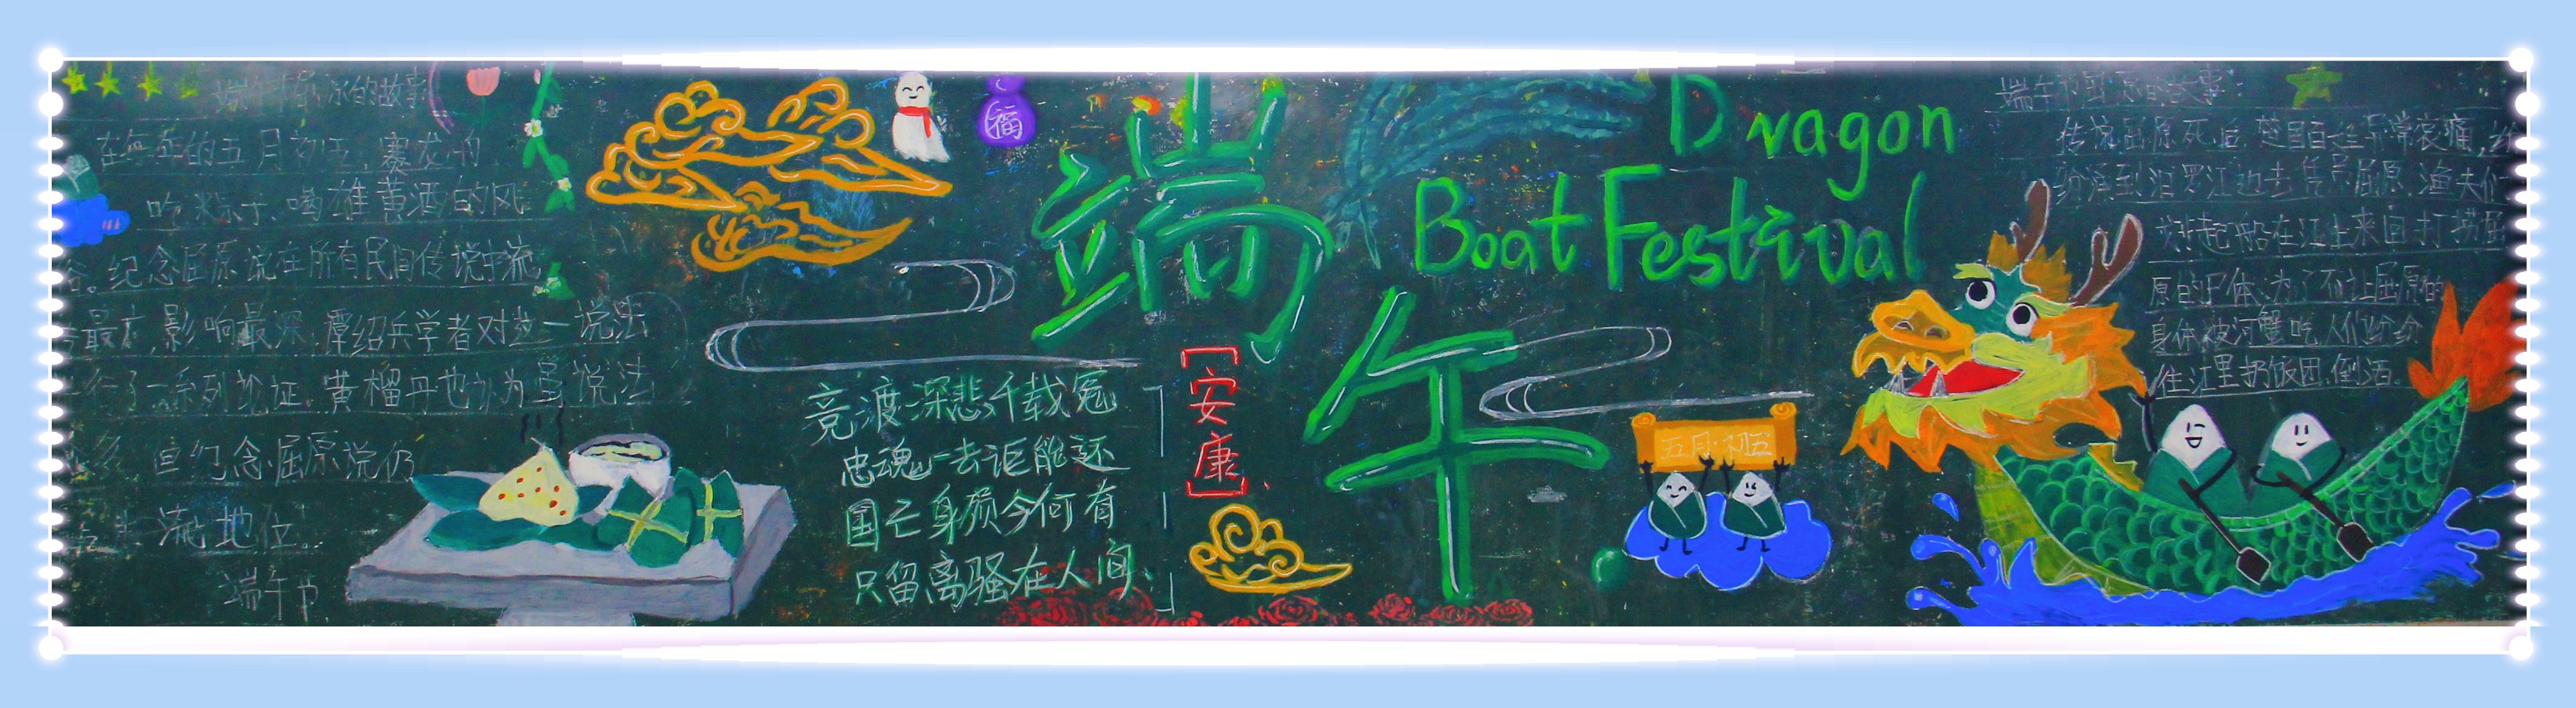 的故事
在每年的五月初五,赛龙舟
吃粽子、喝雄黄酒的风
俗。纪念屈原说在所有民间传说中流
最广,影响最深,谭绍兵学者对这一说
行了一系列论证,黄榴丹也认为虽说法
但纪念屈原说仍
流地位.
端午节
福
端午
Dragon
Boat Festival
[安康]
竞渡深悲千载冤
忠魂一去讵能还
国亡身殒今何有
只留离骚在人间.
五月·初五
端午节
传说屈原死后,楚国百姓异常哀痛,纷
纷涌到汨罗江边去凭吊屈原.渔夫们
划起船在江上来回打捞屈
原的尸体.为了不让屈原的
身体被河蟹吃,人们纷纷
往江里扔饭团,倒酒.